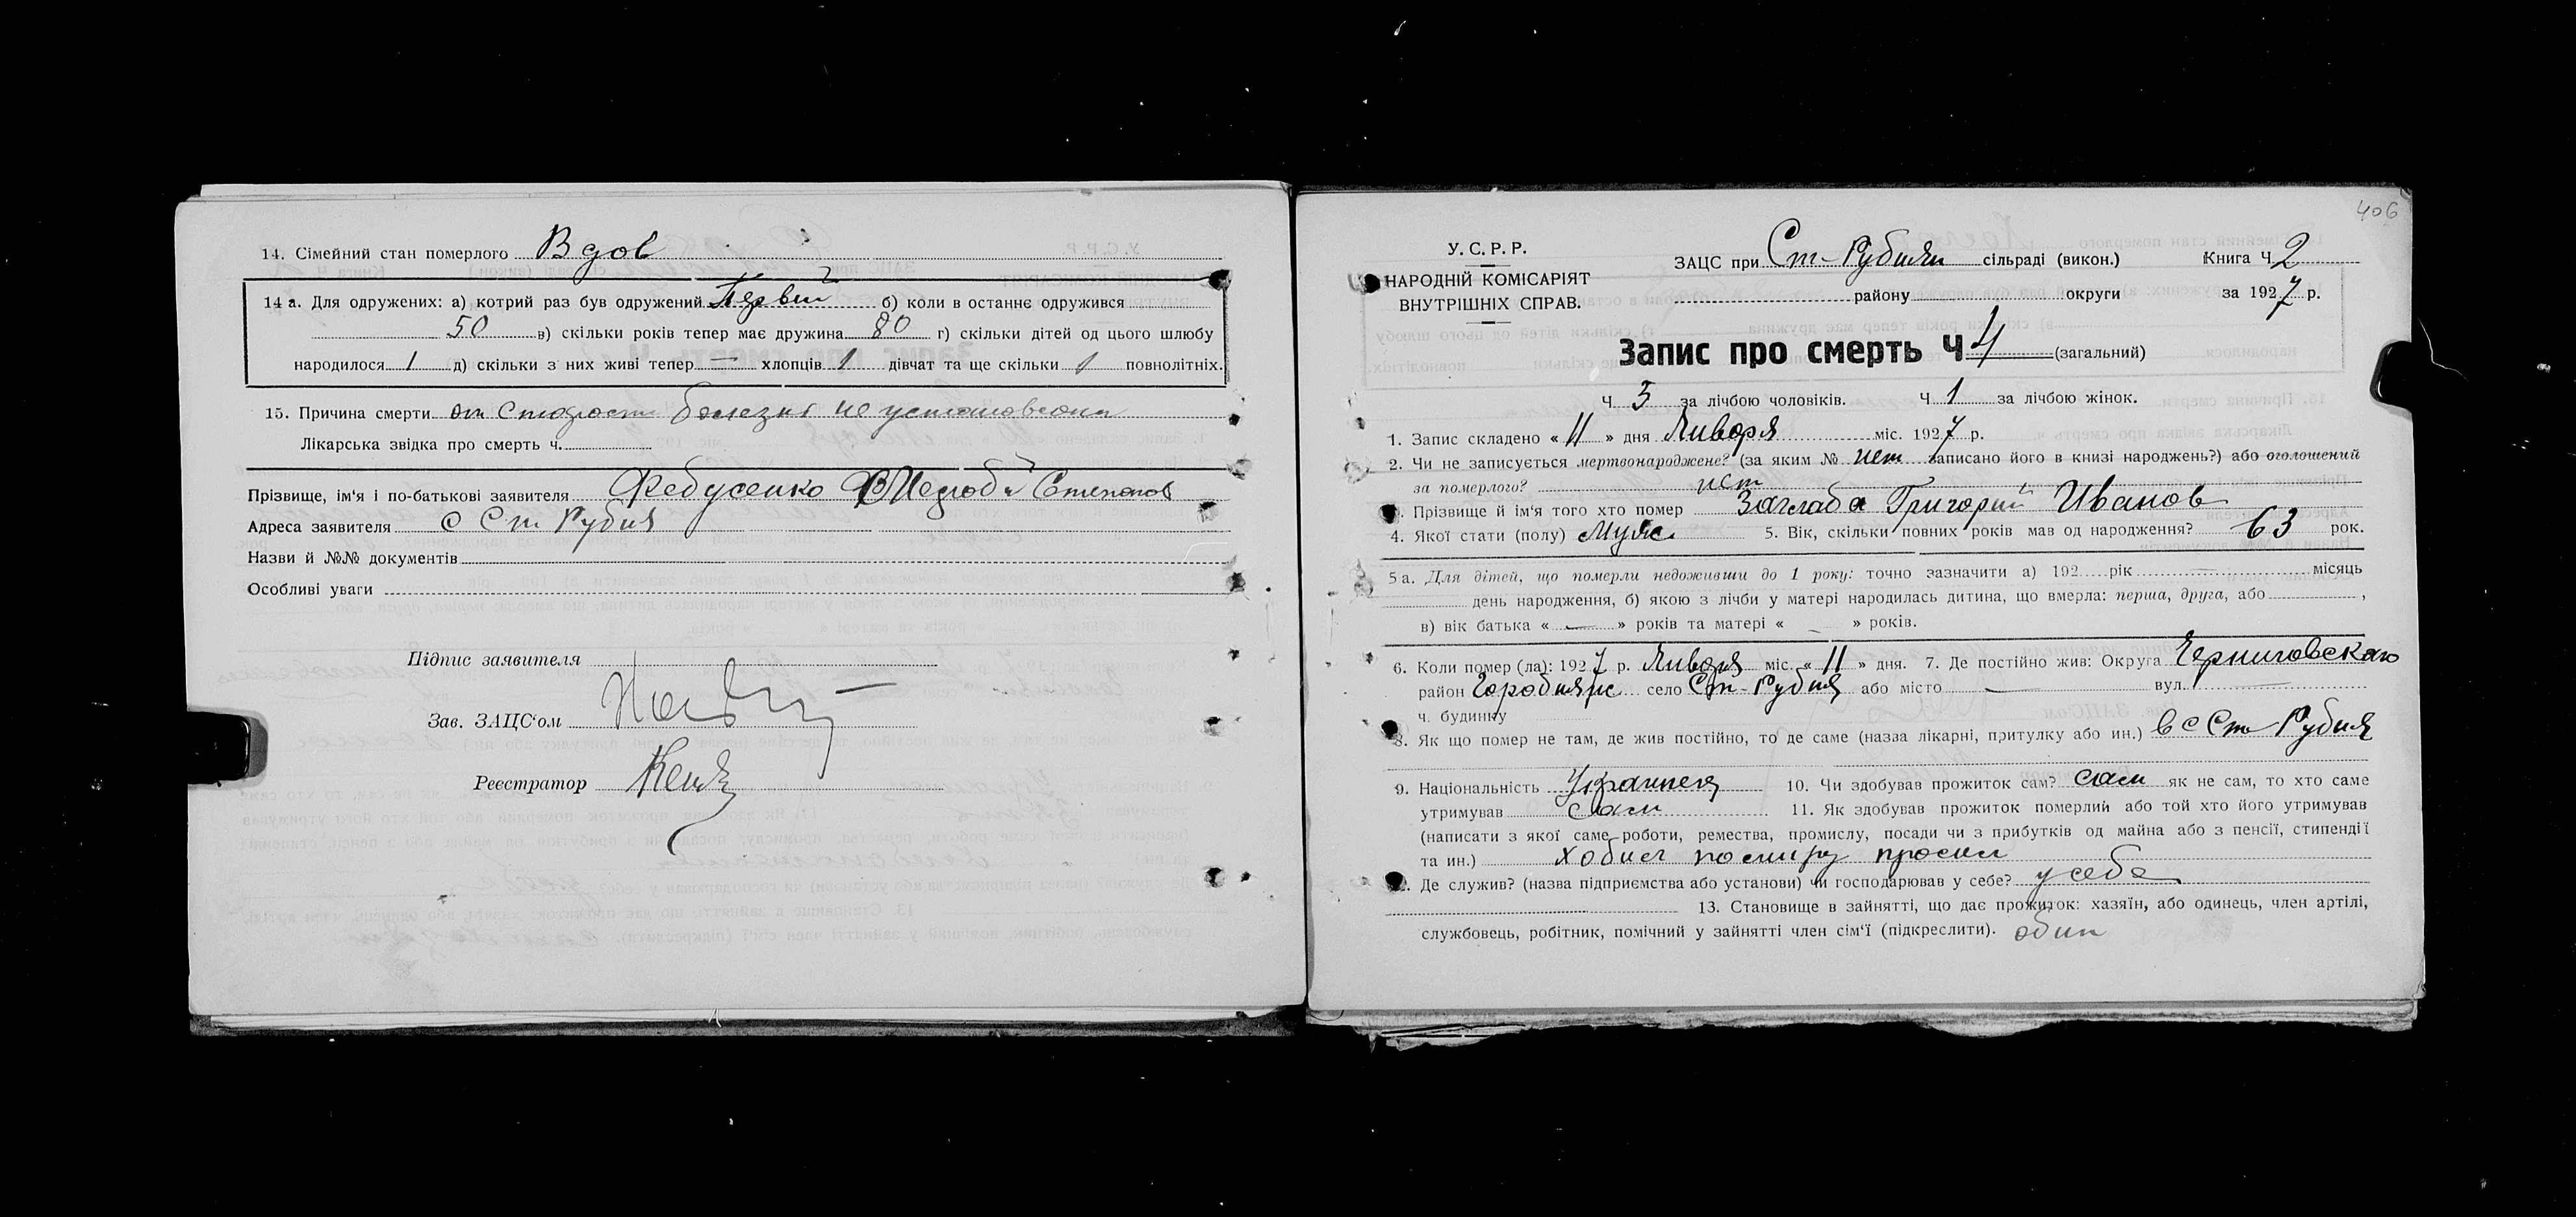 14. Сімейний стан померлого Вдов
14 а. Для одружених: а) котрий раз був одружений Первий б) коли в останнє одружився
50 в) скільки років тепер має дружина 80 г) скільки дітей од цього шлюбу
народилося 1 д) скільки з них живі тепер — хлопців 1 дівчат та ще скільки 1 повнолітніх.
15. Причина смерти от старости болезни не установлена
Лікарська звідка про смерть ч.
Прізвище, ім'я і по-батькові заявителя Степанов
Адреса заявителя с Ст Рубия
Назви й №№ документів
Особливі уваги
Підпис заявителя
Зав. ЗАЦС'ом
Реєстратор
406
У. С. Р. Р.
НАРОДНІЙ КОМІСАРІЯТ
ВНУТРІШНІХ СПРАВ.
ЗАЦС при Ст-Рубиян сільраді (викон.) Книга Ч 2
району округи за 1927 р.
Запис про смерть Ч 4 (загальний)
Ч 3 за лічбою чоловіків. Ч 1 за лічбою жінок.
1. Запис складено « 11 » дня Января міс. 1927 р.
2. Чи не записується мертвонароджене? (за яким № нет записано його в книзі народжень?) або оголошений
за померлого? нет
3. Прізвище й ім'я того хто помер Заглаба Григорий Иванов
4. Якої стати (полу) Муж. 5. Вік, скільки повних років мав од народження? 63 рок.
5 а. Для дітей, що померли недоживши до 1 року: точно зазначити а) 192 рік — місяць
день народження, б) якою з лічби у матері народилась дитина, що вмерла: перша, друга, або ,
в) вік батька « — » років та матері « — » років.
6. Коли помер (ла): 1927 р. Января міс. « 11 » дня. 7. Де постійно жив: Округа Черниговскаго
район Городнянс село Ст-Рубия або місто — вул. —
ч. будинку
8. Як що помер не там, де жив постійно, то де саме (назва лікарні, притулку або ин.) в с Ст Рубия
9. Національність Украинец 10. Чи здобував прожиток сам? сам як не сам, то хто саме
утримував сам 11. Як здобував прожиток померлий або той хто його утримував
(написати з якої саме роботи, ремества, промислу, посади чи з прибутків од майна або з пенсії, стипендії
та ин.) ходил по миру просил
12. Де служив? (назва підприємства або установи) чи господарював у себе? у себе
13. Становище в зайнятті, що дає прожиток: хазяїн, або одинець, член артілі,
службовець, робітник, помічний у зайнятті член сім'ї (підкреслити). один